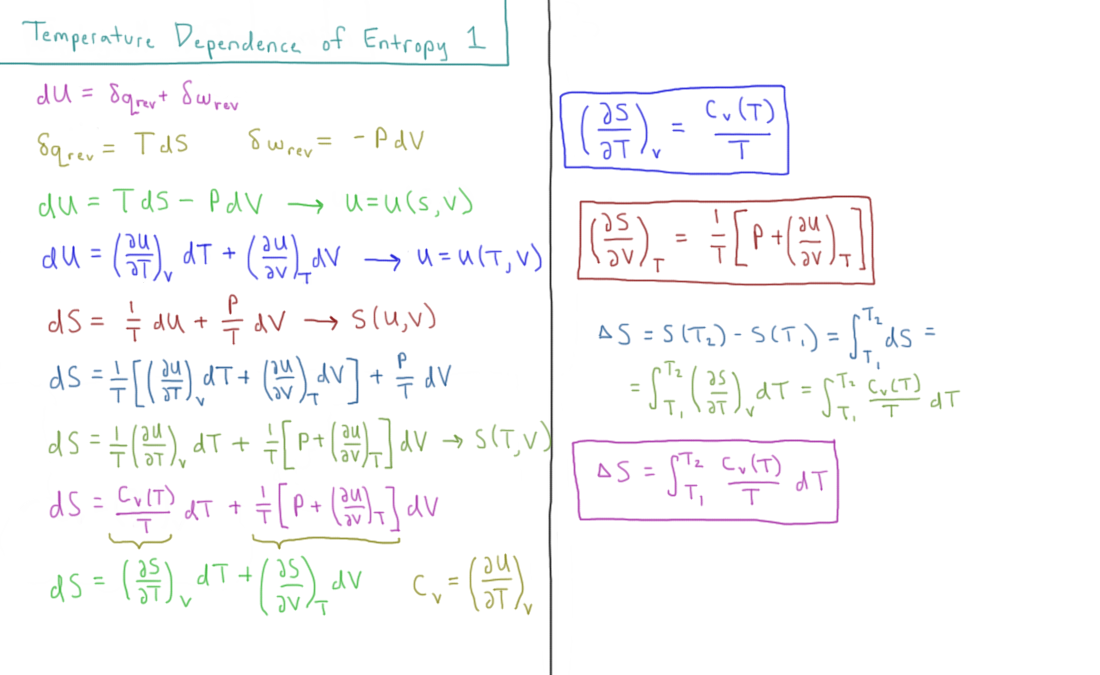 Temperature Dependence of Entropy 1
dU = δq_rev + δw_rev
δq_rev = TdS    δw_rev = -PdV
dU = TdS - PdV → U=U(S,V)
dU = (∂U/∂T)_V dT + (∂U/∂V)_T dV → U=U(T,V)
dS = 1/T dU + P/T dV → S(U,V)
dS = 1/T[(∂U/∂T)_V dT + (∂U/∂V)_T dV] + P/T dV
dS = 1/T(∂U/∂T)_V dT + 1/T[P+(∂U/∂V)_T]dV → S(T,V)
dS = C_V(T)/T dT + 1/T[P+(∂U/∂V)_T]dV
dS = (∂S/∂T)_V dT + (∂S/∂V)_T dV    C_V = (∂U/∂T)_V
(∂S/∂T)_V = C_V(T)/T
(∂S/∂V)_T = 1/T[P+(∂U/∂V)_T]
ΔS = S(T₂) - S(T₁) = ∫_T₁^T₂ dS =
= ∫_T₁^T₂ (∂S/∂T)_V dT = ∫_T₁^T₂ C_V(T)/T dT
ΔS = ∫_T₁^T₂ C_V(T)/T dT